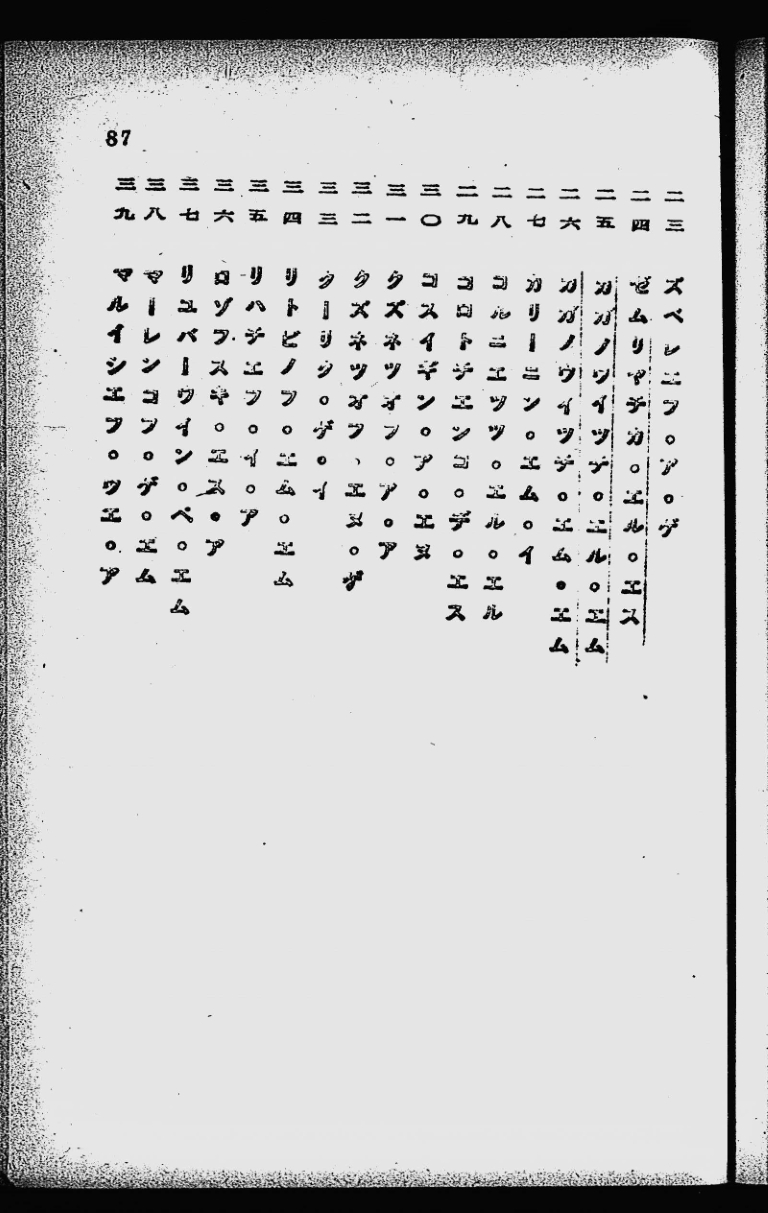 87
二三 ズベレエフ。ア。ゲ
二四 ゼムリヤチカ。エル。エス
二五 カガノウイツチ。エル。エム
二六 カガノウイツチ。エム。エム
二七 カリーニン。エム。イ
二八 コルニエツツ。エル。エル
二九 コロトチエンコ。デ。エス
三〇 コスイギン。ア。エヌ
三一 クズネツオフ。ア。ア
三二 クズネツオフ、エヌ。ゲ
三三 クーリク。ゲ。イ
三四 リトビノフ。エム。エム
三五 リハチエフ。イ。ア
三六 ロゾフスキ。エス。ア
三七 リユバーウイン。ペ。エム
三八 マーレンコフ。ゲ。エム
三九 マルイシエフ。ウエ。ア